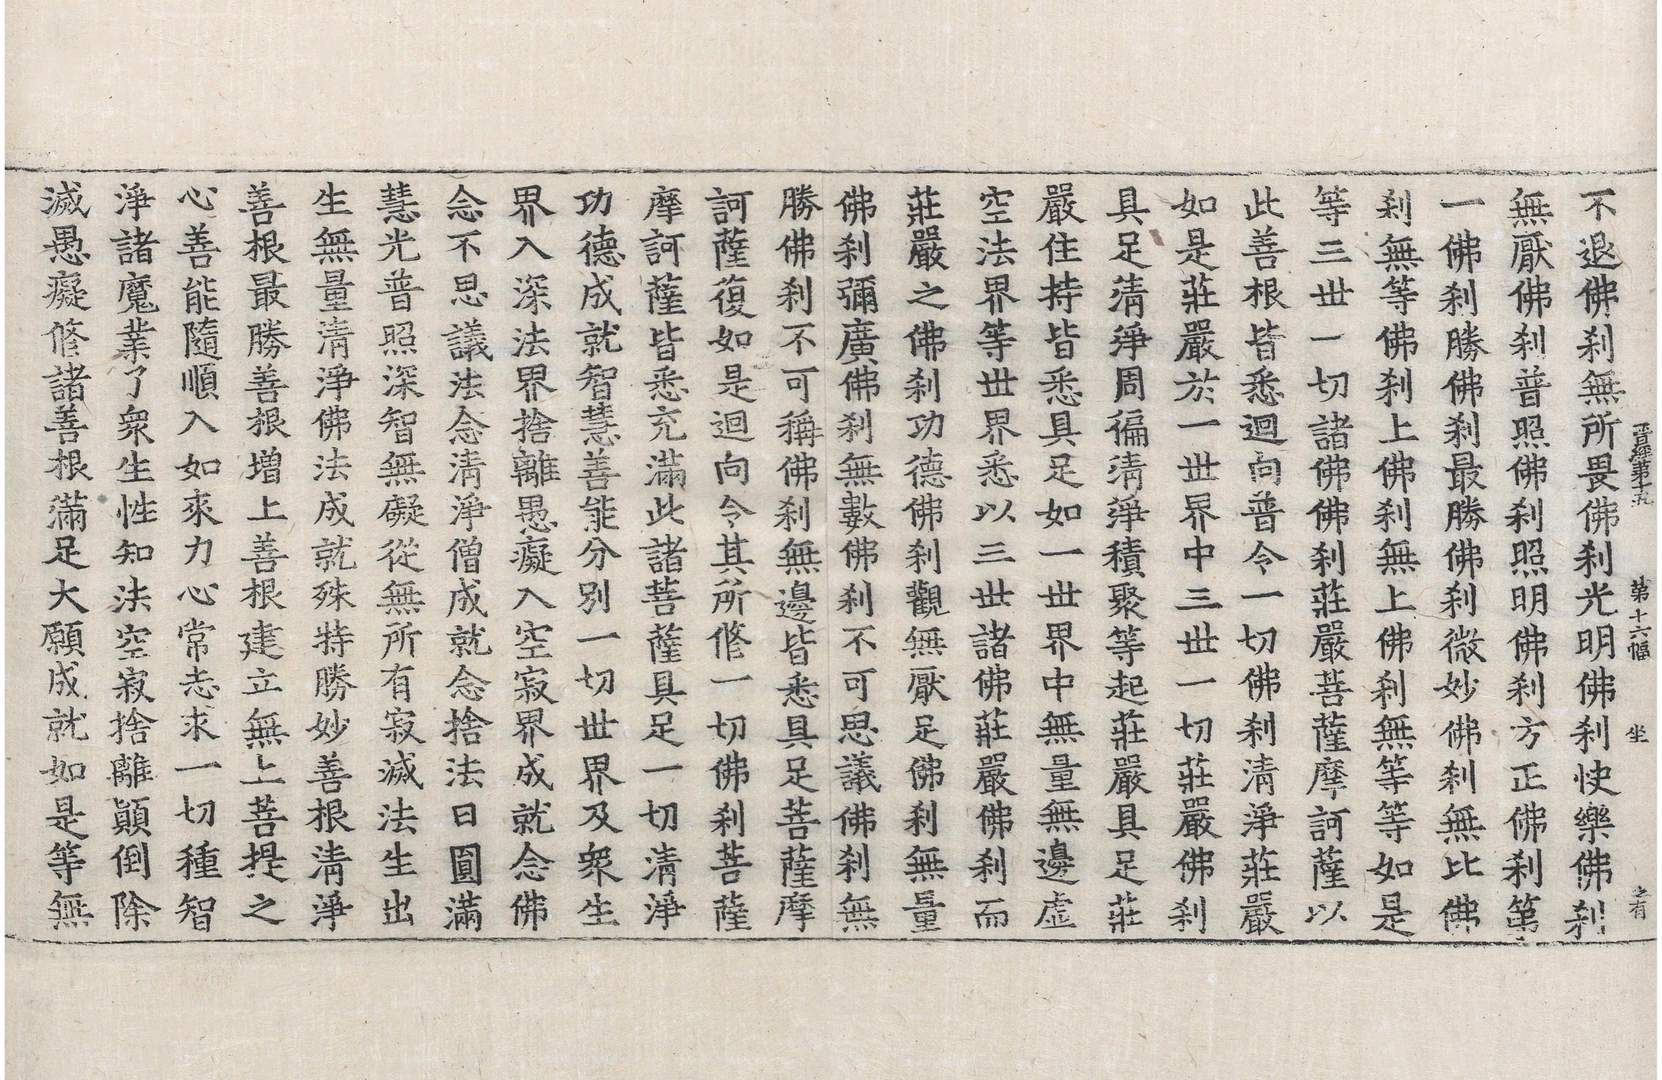 不退佛刹無所畏佛刹光明佛刹快樂佛刹
無厭佛刹普照佛刹照明佛刹方正佛刹第
一佛刹勝佛刹最勝佛刹微妙佛刹無比佛
刹無等佛刹上佛刹無上佛刹無等等如是
等三世一切諸佛佛刹莊嚴菩薩摩訶薩以
此善根皆悉迴向普令一切佛刹清淨莊嚴
如是莊嚴於一世界中三世一切莊嚴佛刹
具足清淨周徧清淨積聚等起莊嚴具足莊
嚴住持皆悉具足如一世界中無量無邊虛
空法界等世界悉以三世諸佛莊嚴佛刹而
莊嚴之佛刹功德佛刹觀無厭足佛刹無量
佛刹彌廣佛刹無數佛刹不可思議佛刹無
勝佛刹不可稱佛刹無邊皆悉具足菩薩摩
訶薩復如是迴向令其所修一切佛刹菩薩
摩訶薩皆悉充滿此諸菩薩具足一切清淨
功德成就智慧善能分別一切世界及衆生
界入深法界捨離愚癡入空寂界成就念佛
念不思議法念清淨僧成就念捨法日圓滿
慧光普照深智無礙從無所有寂滅法生出
生無量清淨佛法成就殊特勝妙善根清淨
善根最勝善根增上善根建立無上菩提之
心善能隨順入如來力心常志求一切種智
淨諸魔業了衆生性知法空寂捨離顛倒除
滅愚癡修諸善根滿足大願成就如是等無
第十六幅 坐